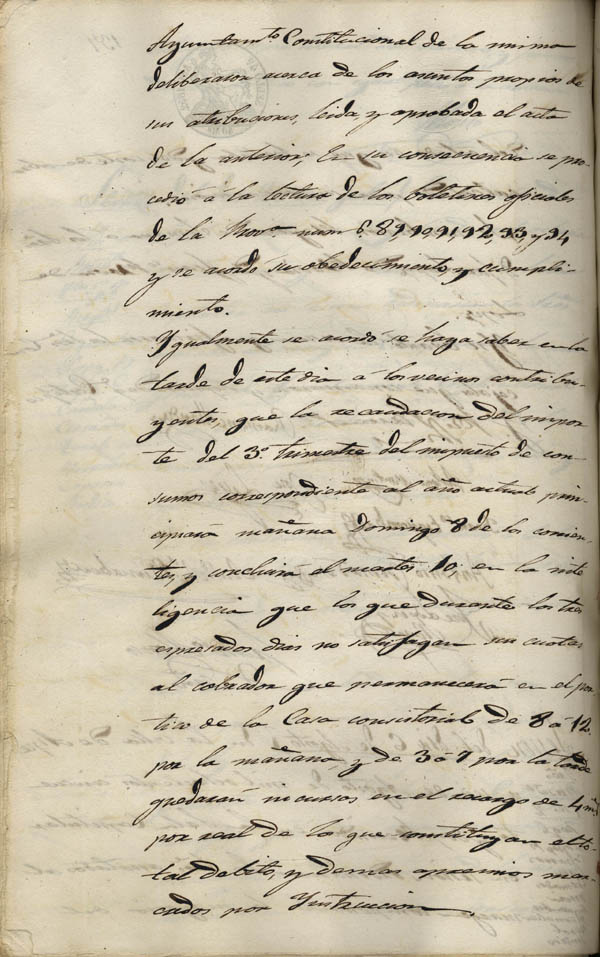 Ayuntamto Constitucional de la misma
deliberaron acerca de los asuntos propios de
sus atribuciones, leida y aprobada el acta
de la anterior. En su consecuencia se pro-
cedió á la lectura de los boletines oficiales
de la Prova num
y se acordó su obedecimiento, y cumpli-
miento.
Ygualmente se acordó se haga saber en la
tarde de este dia á los vecinos contribu-
yentes, que la recaudacion del impor-
te del 3º trimestre del impuesto de con-
sumos correspondiente al año actual prin-
cipiará mañana Domingo 8 de los corrien-
tes, y concluirá el martes 10, en la inte
ligencia que los que durante los tres
espresados dias no satisfagan sus cuotas
al cobrador que permanecerá en el por
tico de la Casa consistorial de 8 á 12
por la mañana, y de 3 á 7 por la tarde
quedarán incursos en el recargo de 4 ms
por real de los que constituyan el to-
tal debito, y demas apremios mar-
cados por Ynstruccion.